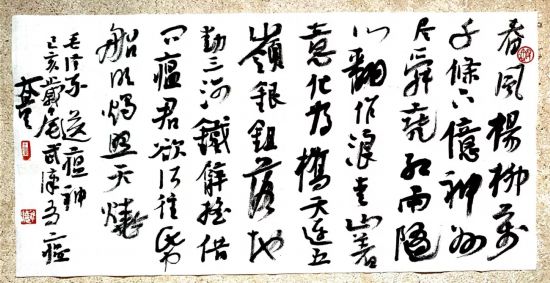 春風楊柳萬
千條六億神州
尽舜堯紅雨随
心翻作浪青山着
意化為橋天連五
嶺銀鉏落地
動三河鐵臂摇借
问瘟君欲何往紙
船明燭照天燒
毛泽东送瘟神
己亥歲尾武漢